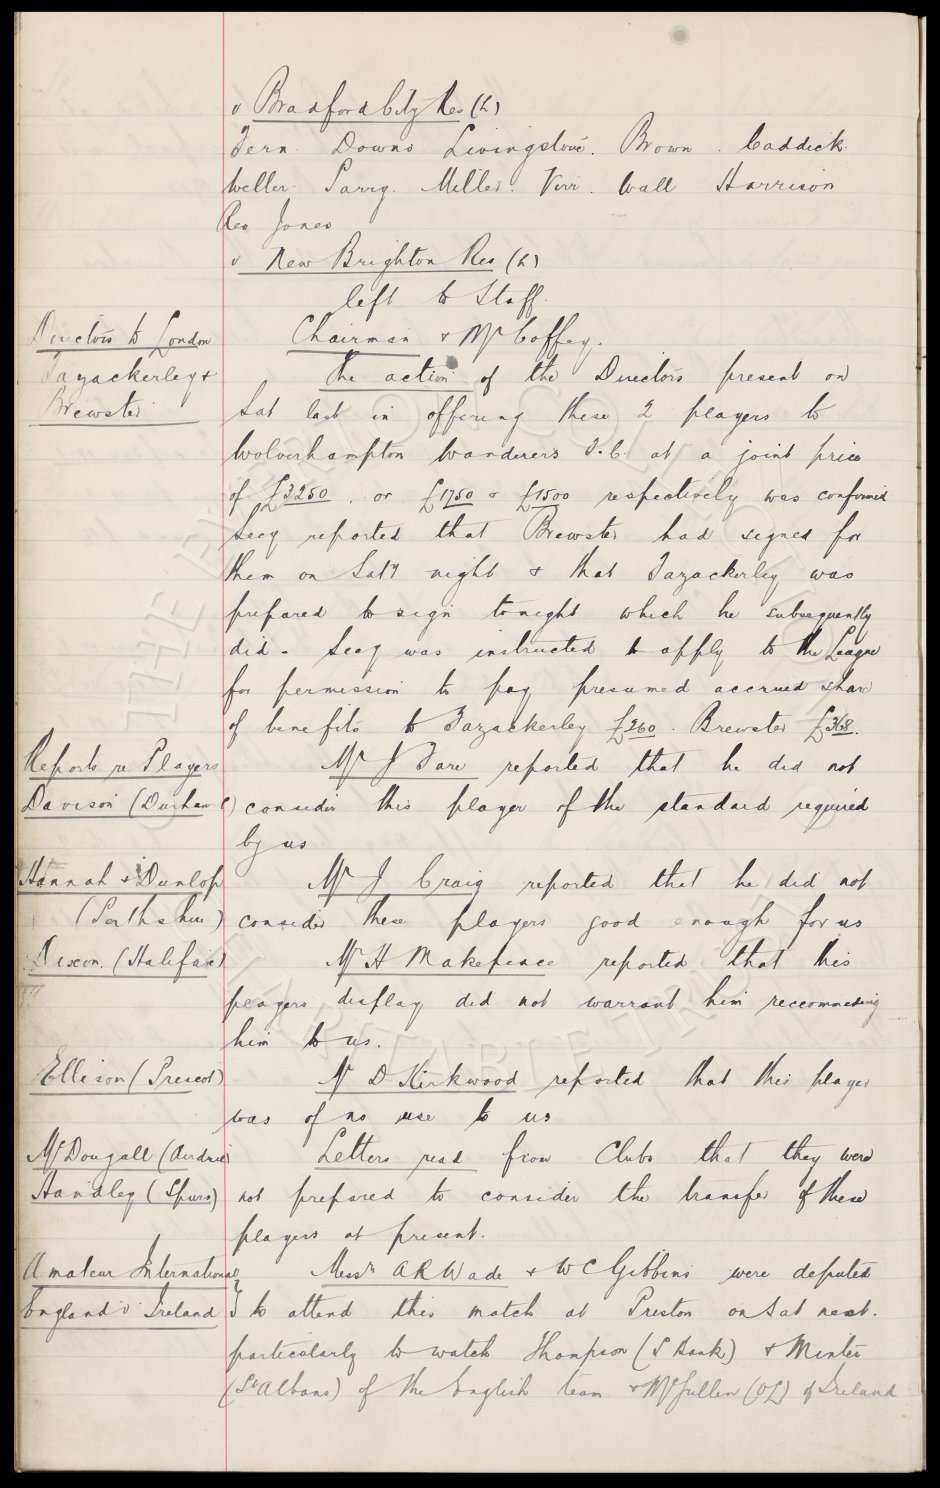 v Bradford City Res (h)
Fern. Downs Livingstone. Brown. Caddick.
Weller. Parry. Miller. Virr. Wall Harrison
Res Jones
v New Brighton Res (h)
left to Staff.
Directors to London Chairman & Mr Coffey.
Tazackerley & The action of the Directors present on
Brewster Sat last in offering these 2 players to
Wolverhampton Wanderers F.C. at a joint price
of £3250. or £1750 & £1500 respectively was confirmed
Secy reported that Brewster had signed for
them on Saty night & that Tazackerley was
prepared to sign tonight which he subsequently
did. Secy was instructed to apply to the League
for permission to pay presumed accrued share
of benefits to Tazackerley £260. Brewster £368.
Reports re Players Mr J Fare reported that he did not
Davison (Durham C) consider this player of the standard required
by us
Hannah & Dunlop Mr J Craig reported that he did not
(Perthshire) consider these players good enough for us
Dixon. (Halifax) Mr H Makepeace reported that this
players display did not warrant him reccommending
him to us.
Ellison (Prescot) Mr D Kirkwood reported that this player
was of no use to us
McDougall (Airdrie) Letters read from Clubs that they were
Handley (Spurs) not prepared to consider the transfer of these
players at present.
Amateur International Messrs A R Wade & W C Gibbins were deputed
England v Ireland } to attend this match at Preston on Sat next.
particularly to watch Thompson (S Bank) & Minter
(St Albans) of the English team & McMullen (OL) of Ireland